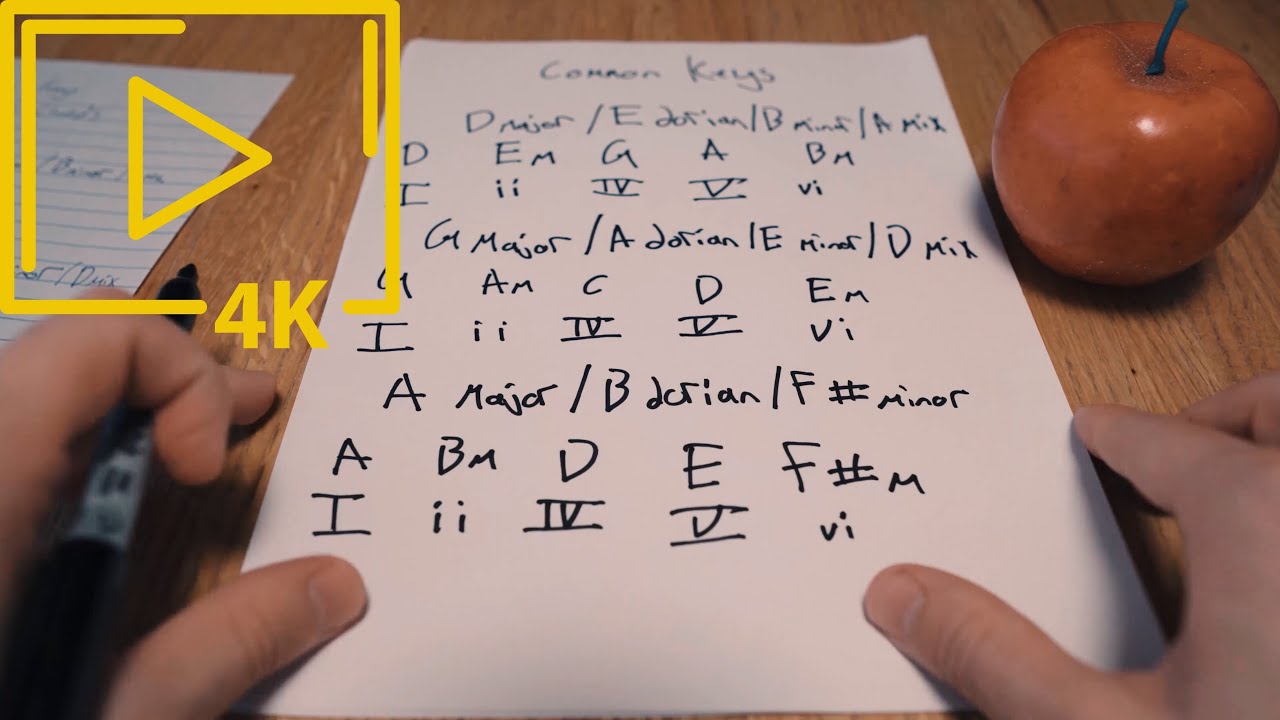 Common Keys
D Major / E dorian / B minor / A mix
D Em G A Bm
I ii IV V vi
G Major / A dorian / E minor / D mix
G Am C D Em
I ii IV V vi
A Major / B dorian / F# minor
A Bm D E F#m
I ii IV V vi
/ B minor /
/ D mix
4K